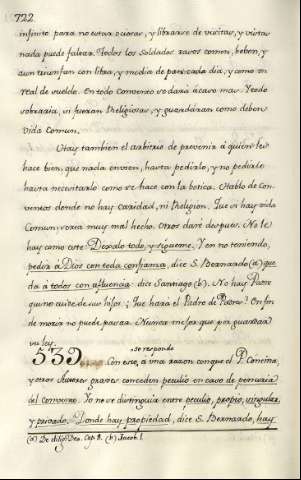 722
infinito para no estar ociosas, y librarse de visitas, y vistas
nada puede faltar. Todos los Soldados rasos comen, beben, y
aun triunfan con libra, y media de pan cada dia, y como un
real de sueldo. En todo Convento se daria acaso mas. Y todo
sobraria, si fueran Religiosas, y guardáran como deben
Vida Comun.
Otras tambien el arbitrio de prevenir à quien les
hace bien que nada envien, hasta pedirlo, y no pedirlo
hasta necesitarlo como se hace con la botica. Hablo de Con-
ventos donde no hay Caridad, ni Religion. Que si hay vida
Comun, seria muy mal hecho. Otros daré despues. No le
hay como este Dexalo todo, y sigueme. Y en no teniendo,
pedir a Dios con toda confianza, dice S. Bernardo (a) que
da a todos con afluencia: dice Santiago (b). No hay Padre
que no cuide de sus hijos: ¿Que hará el Padre de Padres? En fin
de morir no puede pasar. Nunca mejor que por guardar
su ley.
se responde
532 Con eso, à una razon con que el P. Concina,
y otros Autores graves conceden peculio en caso de penuria
del Convento. Yo no se distinguir entre peculio, propio, singular,
y privado. Donde hay propiedad, dice S. Bernardo, hay
(a) De dilig. Deo. Cap. 8. (b) Jacob. 1.